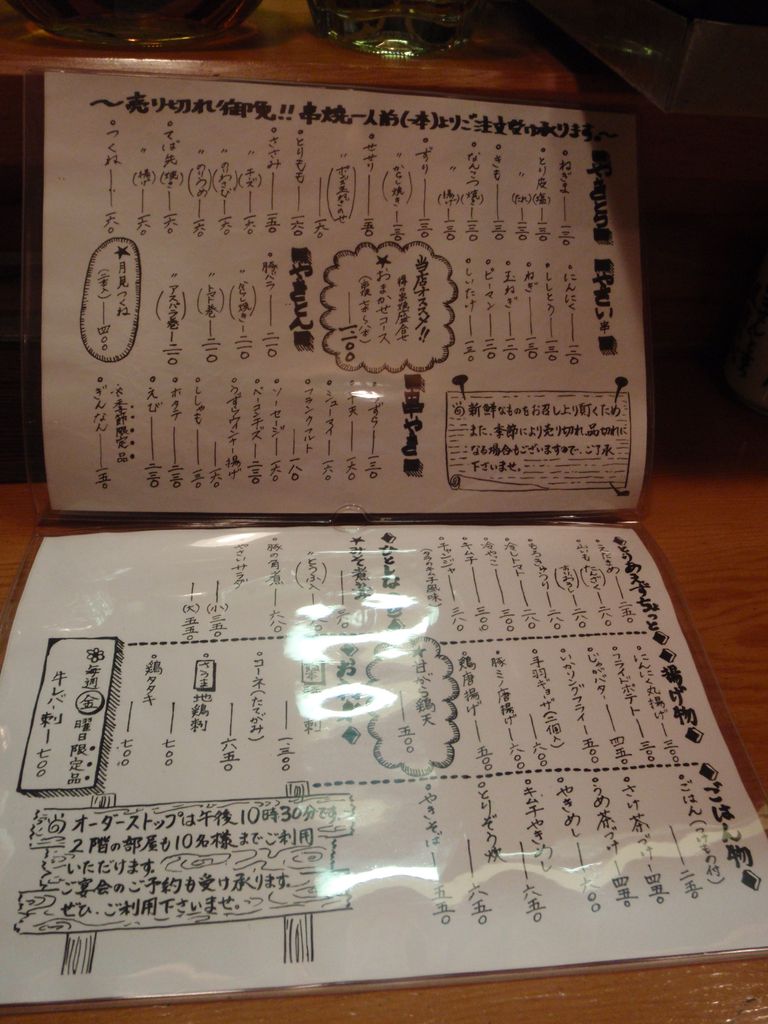 ～売り切れ御免!! 串焼一人前(一本)よりご注文受け承ります。～
やきとり
・ねぎま 一三〇
・とり皮(塩) 一三〇
〃(たれ) 一三〇
・きも 一三〇
・なんこつ(焼き) 一三〇
〃(揚げ) 一三〇
・ずり 一三〇
〃(からし焼き) 一三〇
・せせり 一五〇
・とりもも 一六〇
・ささみ 一五〇
〃(チーズ) 一六〇
〃(のりわさび) 一六〇
〃(のりうめ) 一六〇
・てば先(焼き) 一六〇
〃(揚げ) 一六〇
・つくね 一六〇
やさい串
・にんにく 一三〇
・ししとう 一三〇
・ねぎ 一三〇
・玉ねぎ 一三〇
・ピーマン 一三〇
・しいたけ 一三〇
当店オススメ!!
★おまかせコース
一二〇〇
やきとん
・豚バラ 二一〇
〃(からし焼き) 二一〇
〃(しそ巻) 二一〇
〃(アスパラ巻) 二一〇
★月見つくね
(二本入) 四〇〇
㊟新鮮なものをお召し上り頂くため
また、季節により売り切れ、品切れに
なる場合もございますので、ご了承
下さいませ。
串やき
・うずら 一三〇
・シューマイ 一六〇
・フランクフルト 一八〇
・ソーセージ 一六〇
・ベーコンチーズ 一三〇
・うずらウインナー揚げ 一六〇
・ししゃも 一三〇
・ホタテ 二三〇
・えび 二三〇
※季節限定品
・ぎんなん 一五〇
◆とりあえずちょっと◆
・えだまめ 二五〇
・山いも(たんざく) 二八〇
・もろきゅうり 二八〇
・冷しトマト 三〇〇
・冷やっこ 三〇〇
・キムチ 三八〇
・チャンジャ
(タラのキムチ風味) 三八〇
◆ひとしな◆
(とうふ入)
・豚の角煮 六八〇
・やさいサラダ
(小) 三五〇
(大) 五五〇
◆揚げ物◆
・にんにく丸揚げ 三〇〇
・フライドポテト 四五〇
・じゃがバター 四五〇
・いかリングフライ 五〇〇
・手羽ギョーザ(二個入) 六〇〇
・豚ミノ唐揚げ 六〇〇
・鶏唐揚げ 五〇〇
★甘がら鶏天
五〇〇
・コーネ(たてがみ) 一三〇〇
・さつま地鶏刺 六五〇
七〇〇
・鶏タタキ 七〇〇
毎週㊎曜日限定品
牛レバー刺 七〇〇
◆ごはん物◆
・ごはん(つけもの付) 二五〇
・さけ茶づけ 四五〇
・うめ茶づけ 四五〇
・やきめし 六〇〇
・キムチやきめし 六五〇
・とりぞう炊 六五〇
・やきそば 五五〇
㊟オーダーストップは午後10時30分です。
2階の部屋も10名様までご利用
いただけます。
ご宴会のご予約も受け承ります。
ぜひ、ご利用下さいませ。